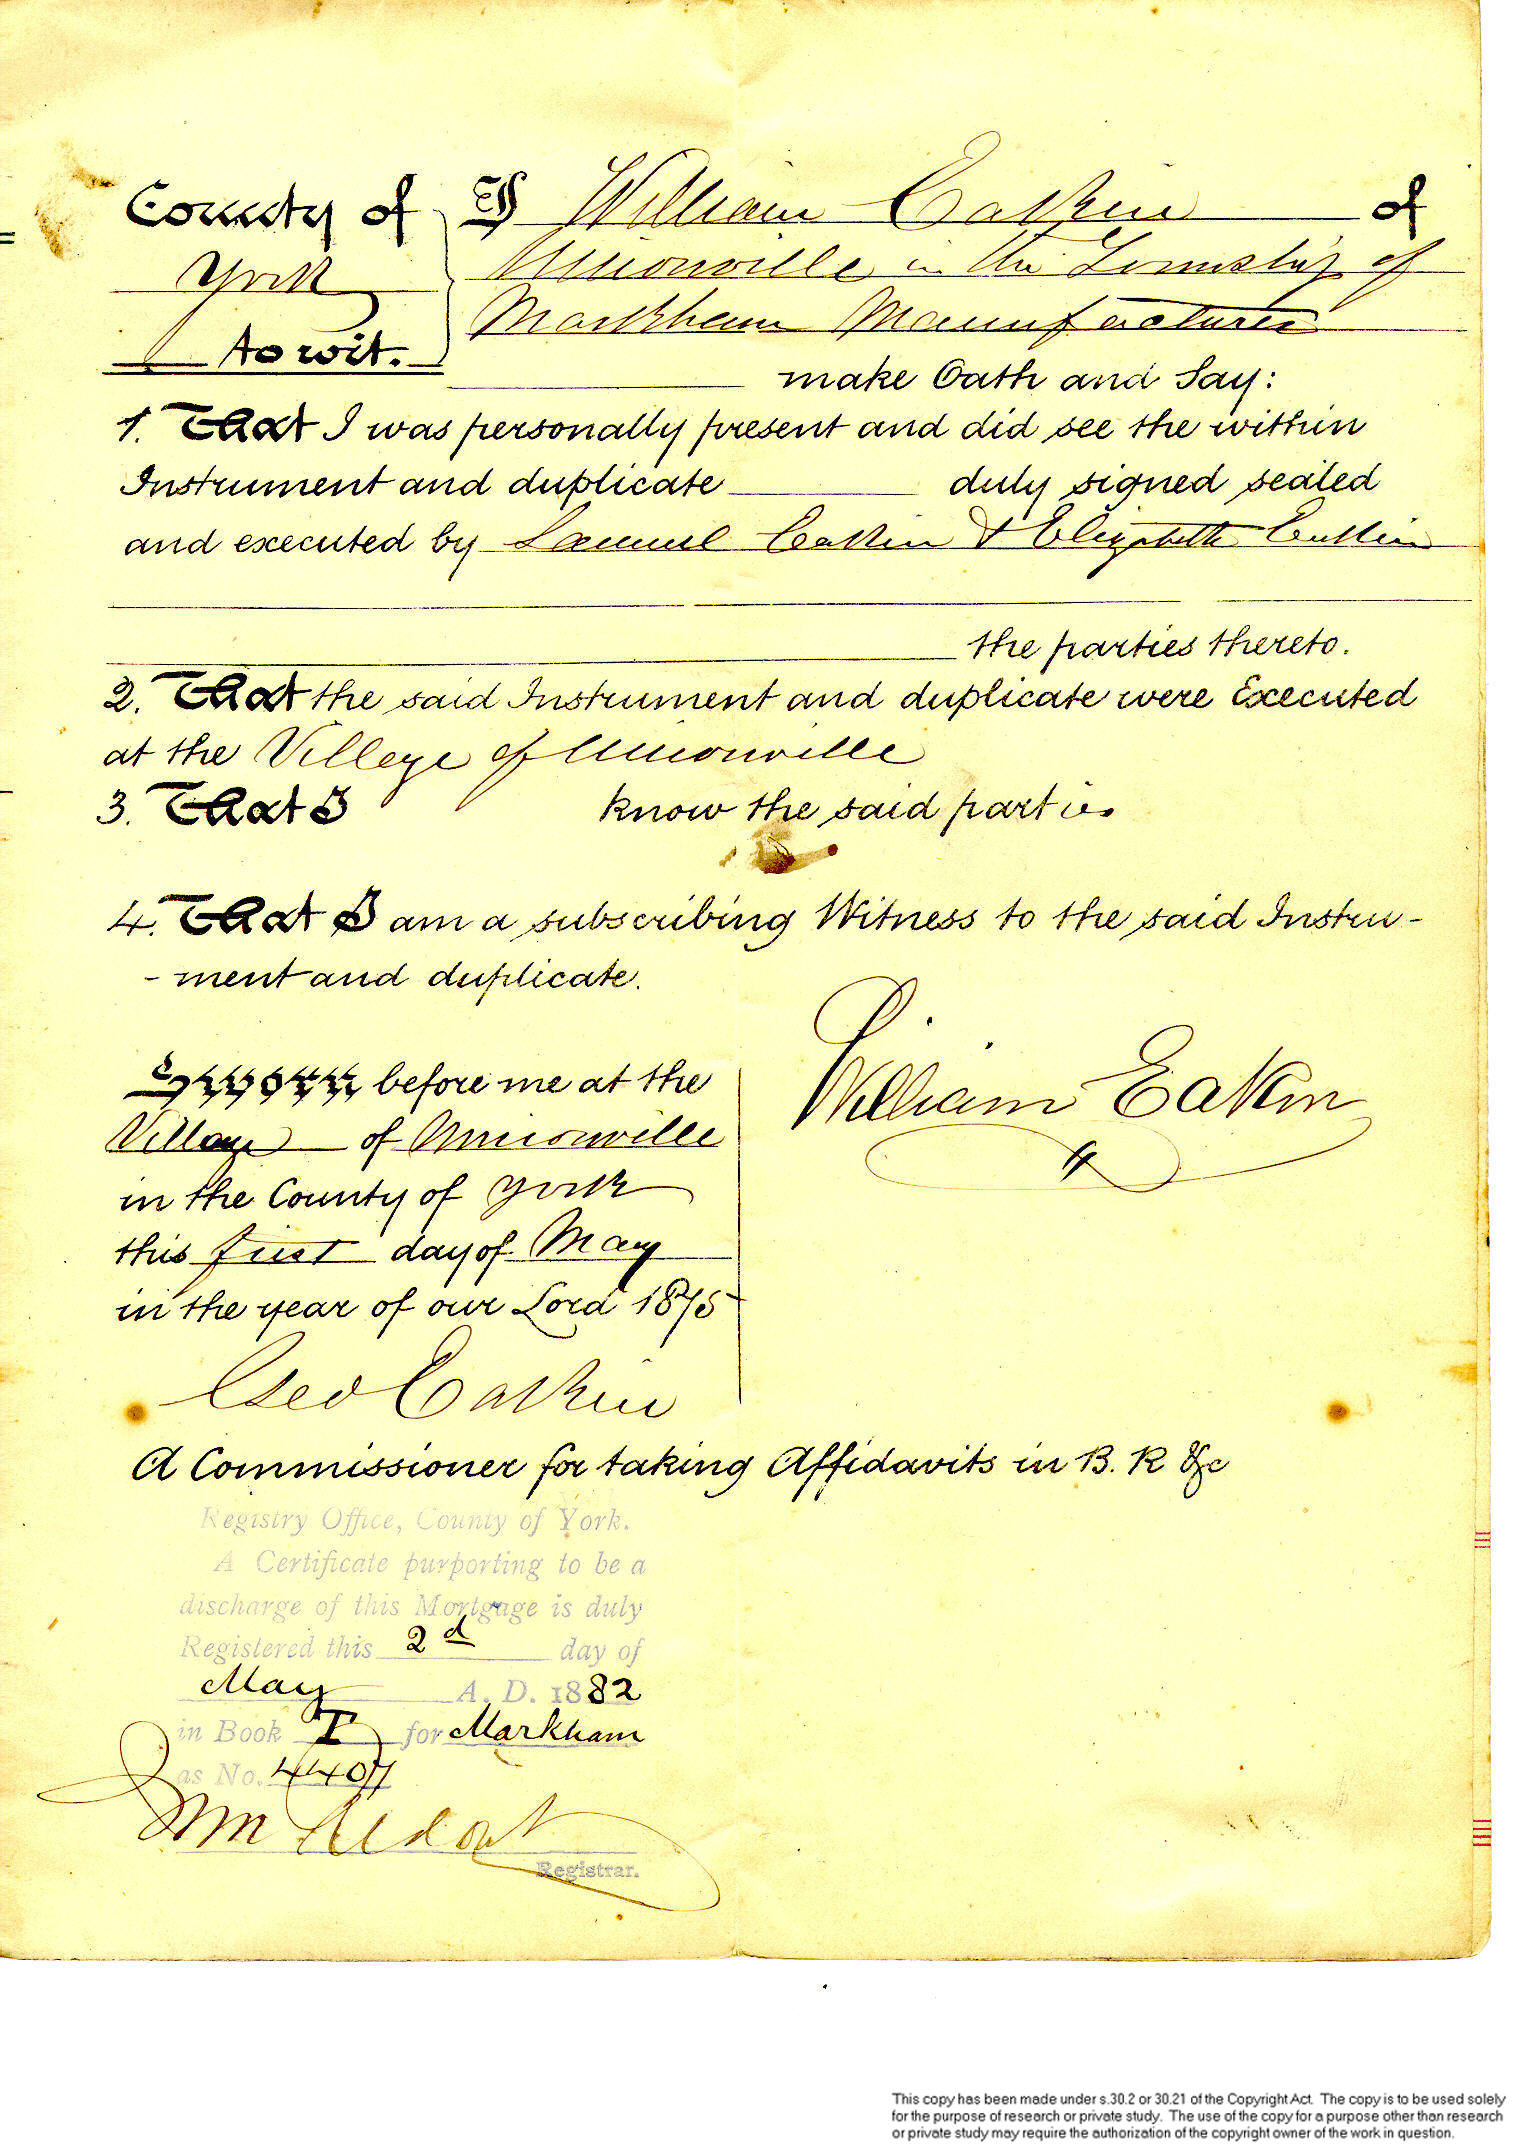 County of
York
To wit.
I William Eakin of
Unionville in the Township of
Markham Manufacturer
make Oath and Say:
1. That I was personally present and did see the within
Instrument and duplicate duly signed sealed
and executed by Samuel Eakin & Elizabeth Eakin
the parties thereto.
2. That the said Instrument and duplicate were Executed
at the Village of Unionville
3. That I know the said parties
4. That I am a subscribing Witness to the said Instru-
-ment and duplicate.
Sworn before me at the
Village of Unionville
in the County of York
this first day of May
in the year of our Lord 1875
William Eakin
Geo Eakin
A Commissioner for taking Affidavits in B. R &c
Registry Office, County of York.
A Certificate purporting to be a
discharge of this Mortgage is duly
Registered this 2d day of
May A. D. 1882
in Book I for Markham
as No. 4407
Registrar.
This copy has been made under s.30.2 or 30.21 of the Copyright Act. The copy is to be used solely
for the purpose of research or private study. The use of the copy for a purpose other than research
or private study may require the authorization of the copyright owner of the work in question.